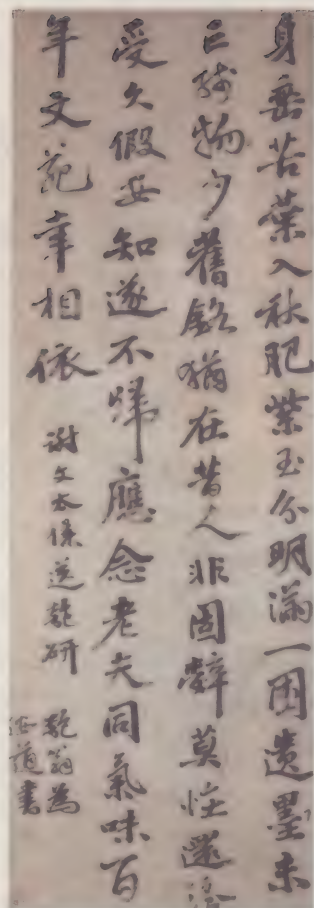 身垂苦葉入秋肥紫玉分明滿一圍遺墨未
亡殘物少舊銘猶在昔人非固辭莫怪還
受久假安知遂不歸應念老夫同氣味百
年文苑幸相依
謝文太僕送匏研
匏翁為
道書